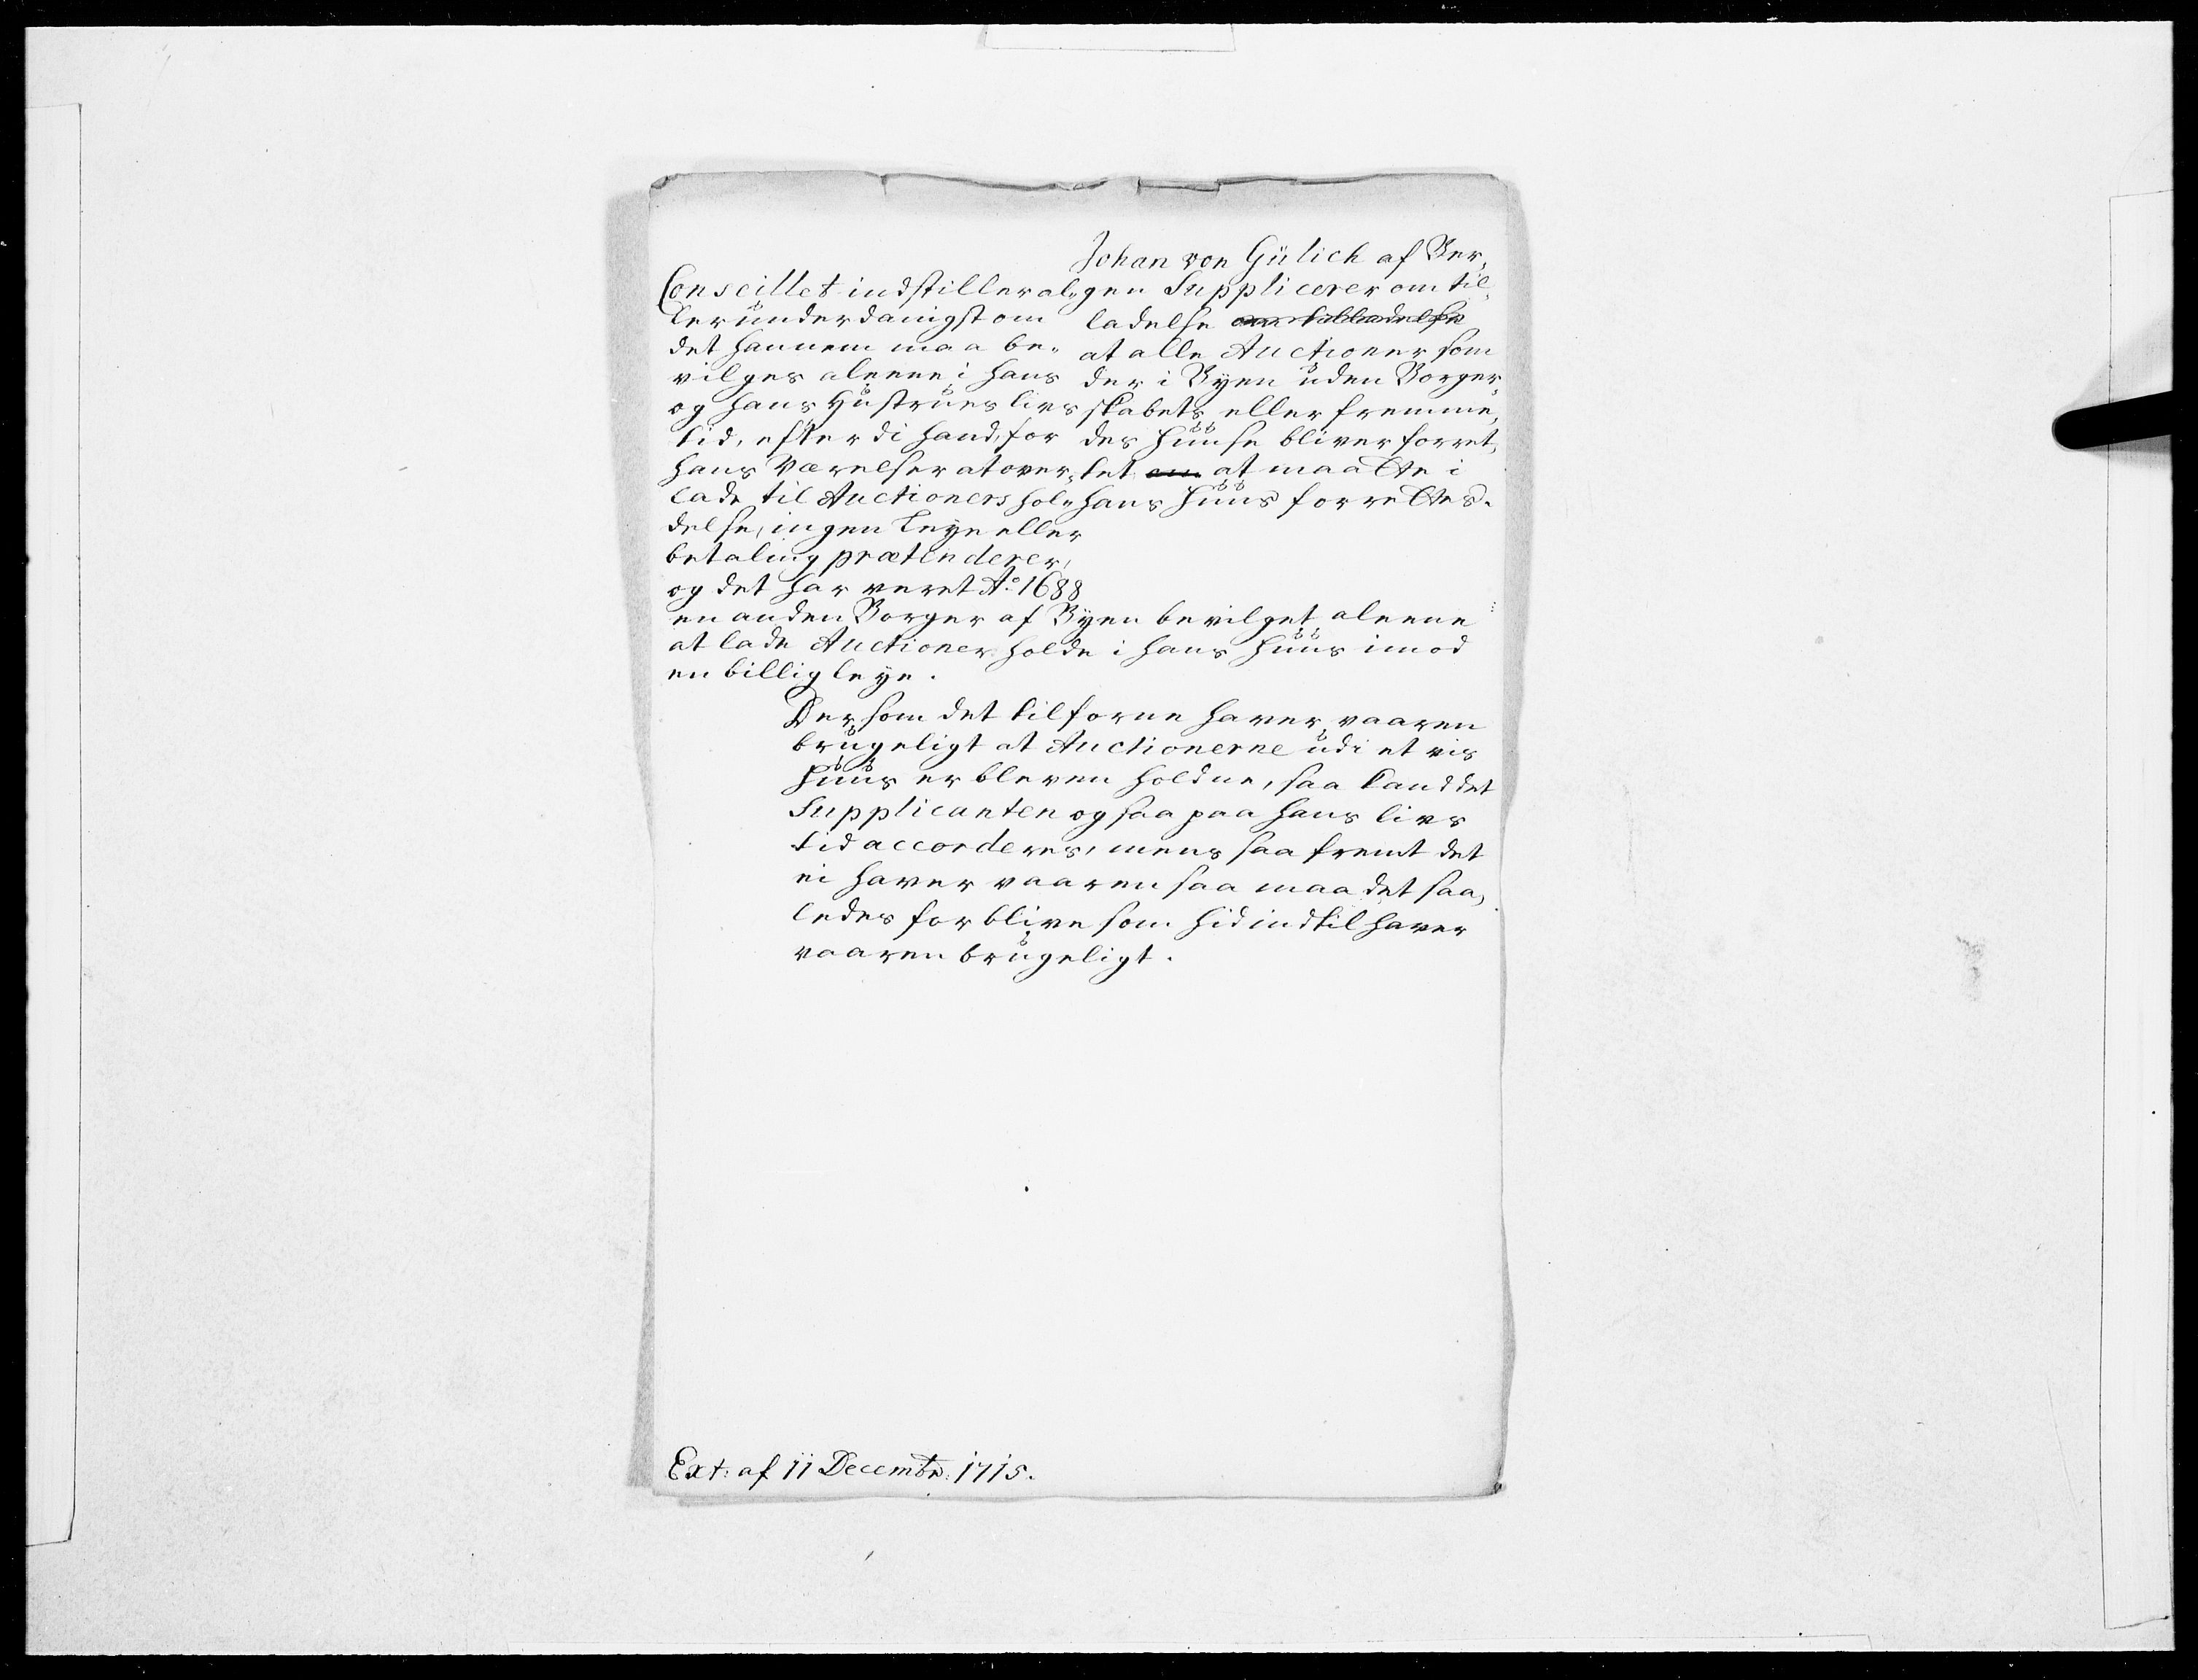 Johan von Gülich af Ber¬
gen Supplicerer om til¬
ladelse om tilladelse
at alle Auctioner som
der i Byen uden Borger¬
skabets eller fremme¬
des Huuse bliver forret¬
tet om at maatte i
hans Huus forrettes.
Conseillet indstiller al¬
lerunderdanigst om
det hannem maa be¬
vilges aleene i hans
og hans Hustrues livs
tid, efterdi hand, for
hans Værelser at over¬
lade til Auctioners hol¬
delse, ingen Leye eller
betaling prætenderer,
og det har veret Ao 1688
en anden Borger af Byen bevilget aleene
at lade Auctioner holde i hans Huus imod
en billig leye.
Dersom det tilforne haver vaaren
brugeligt at Auctionerne udi et vis
Huus er bleven holdne, saa kand det
Supplicanten og saa paa hans livs
tid accorderes, mens saa fremt det
ei haver vaaren saa maa det saa¬
ledes forblive som hid indtil haver
vaaren brugeligt.
Ext: af 11 Decembr: 1715.